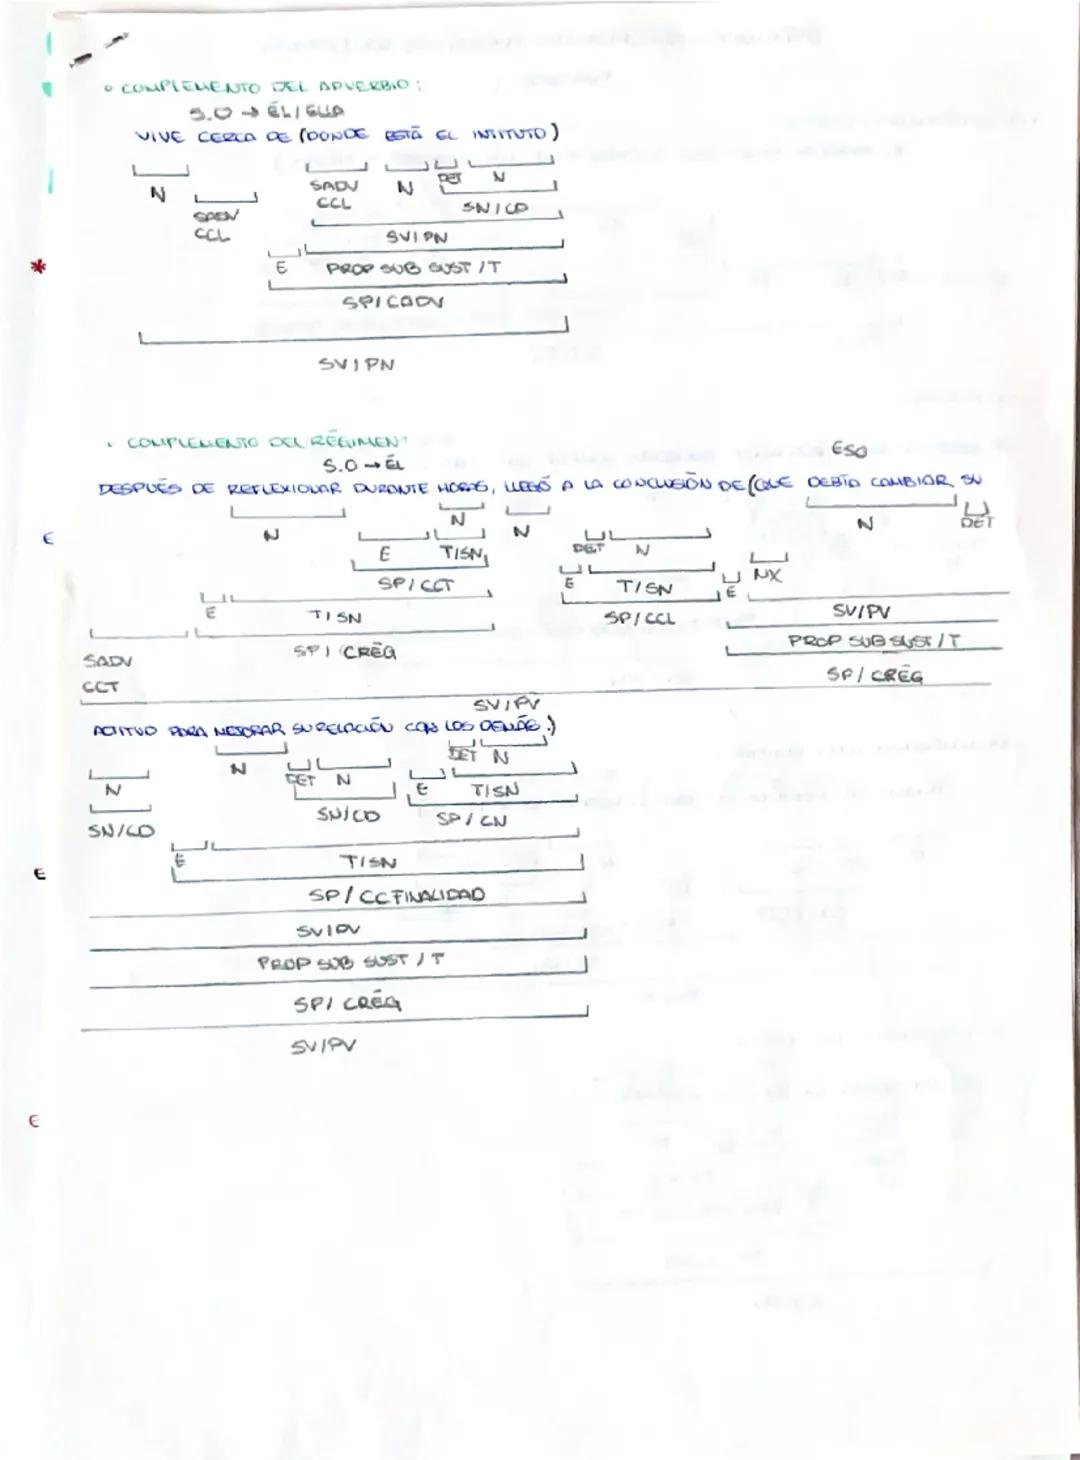 • COMPLEMENTO DEL ADVERBIO:
S.O → ÉL/ELLA
VIVE CERCA DE (DONDE ESTÁ EL INTITUTO)
N SADV N DET N
SADV CCL SN/CD
CCL SV/PN
E PROP SUB SUST/T
*
SP/CADV
SV/PN
• COMPLEMENTO DEL RÉGIMEN:
S.O → ÉL ESO
DESPUÉS DE REFLEXIONAR DURANTE HORAS, LLEGÓ A LA CONCLUSIÓN DE (QUE DEBÍA CAMBIAR SU
N N N N DET
E T/SN DET N
SP/CCT E T/SN E NX
E T/SN SP/CCL SV/PV
SADV SP/CRÉG PROP SUB SUST/T
CCT SP/CRÉG
SV/PV
ACTITUD PARA MEJORAR SU RELACIÓN CON LOS DEMÁS.)
N DET N DET N
N SN/CD E T/SN
SN/CD SP/CN
E T/SN
SP/CCFINALIDAD
SV/PV
PROP SUB SUST/T
SP/CRÉG
SV/PV